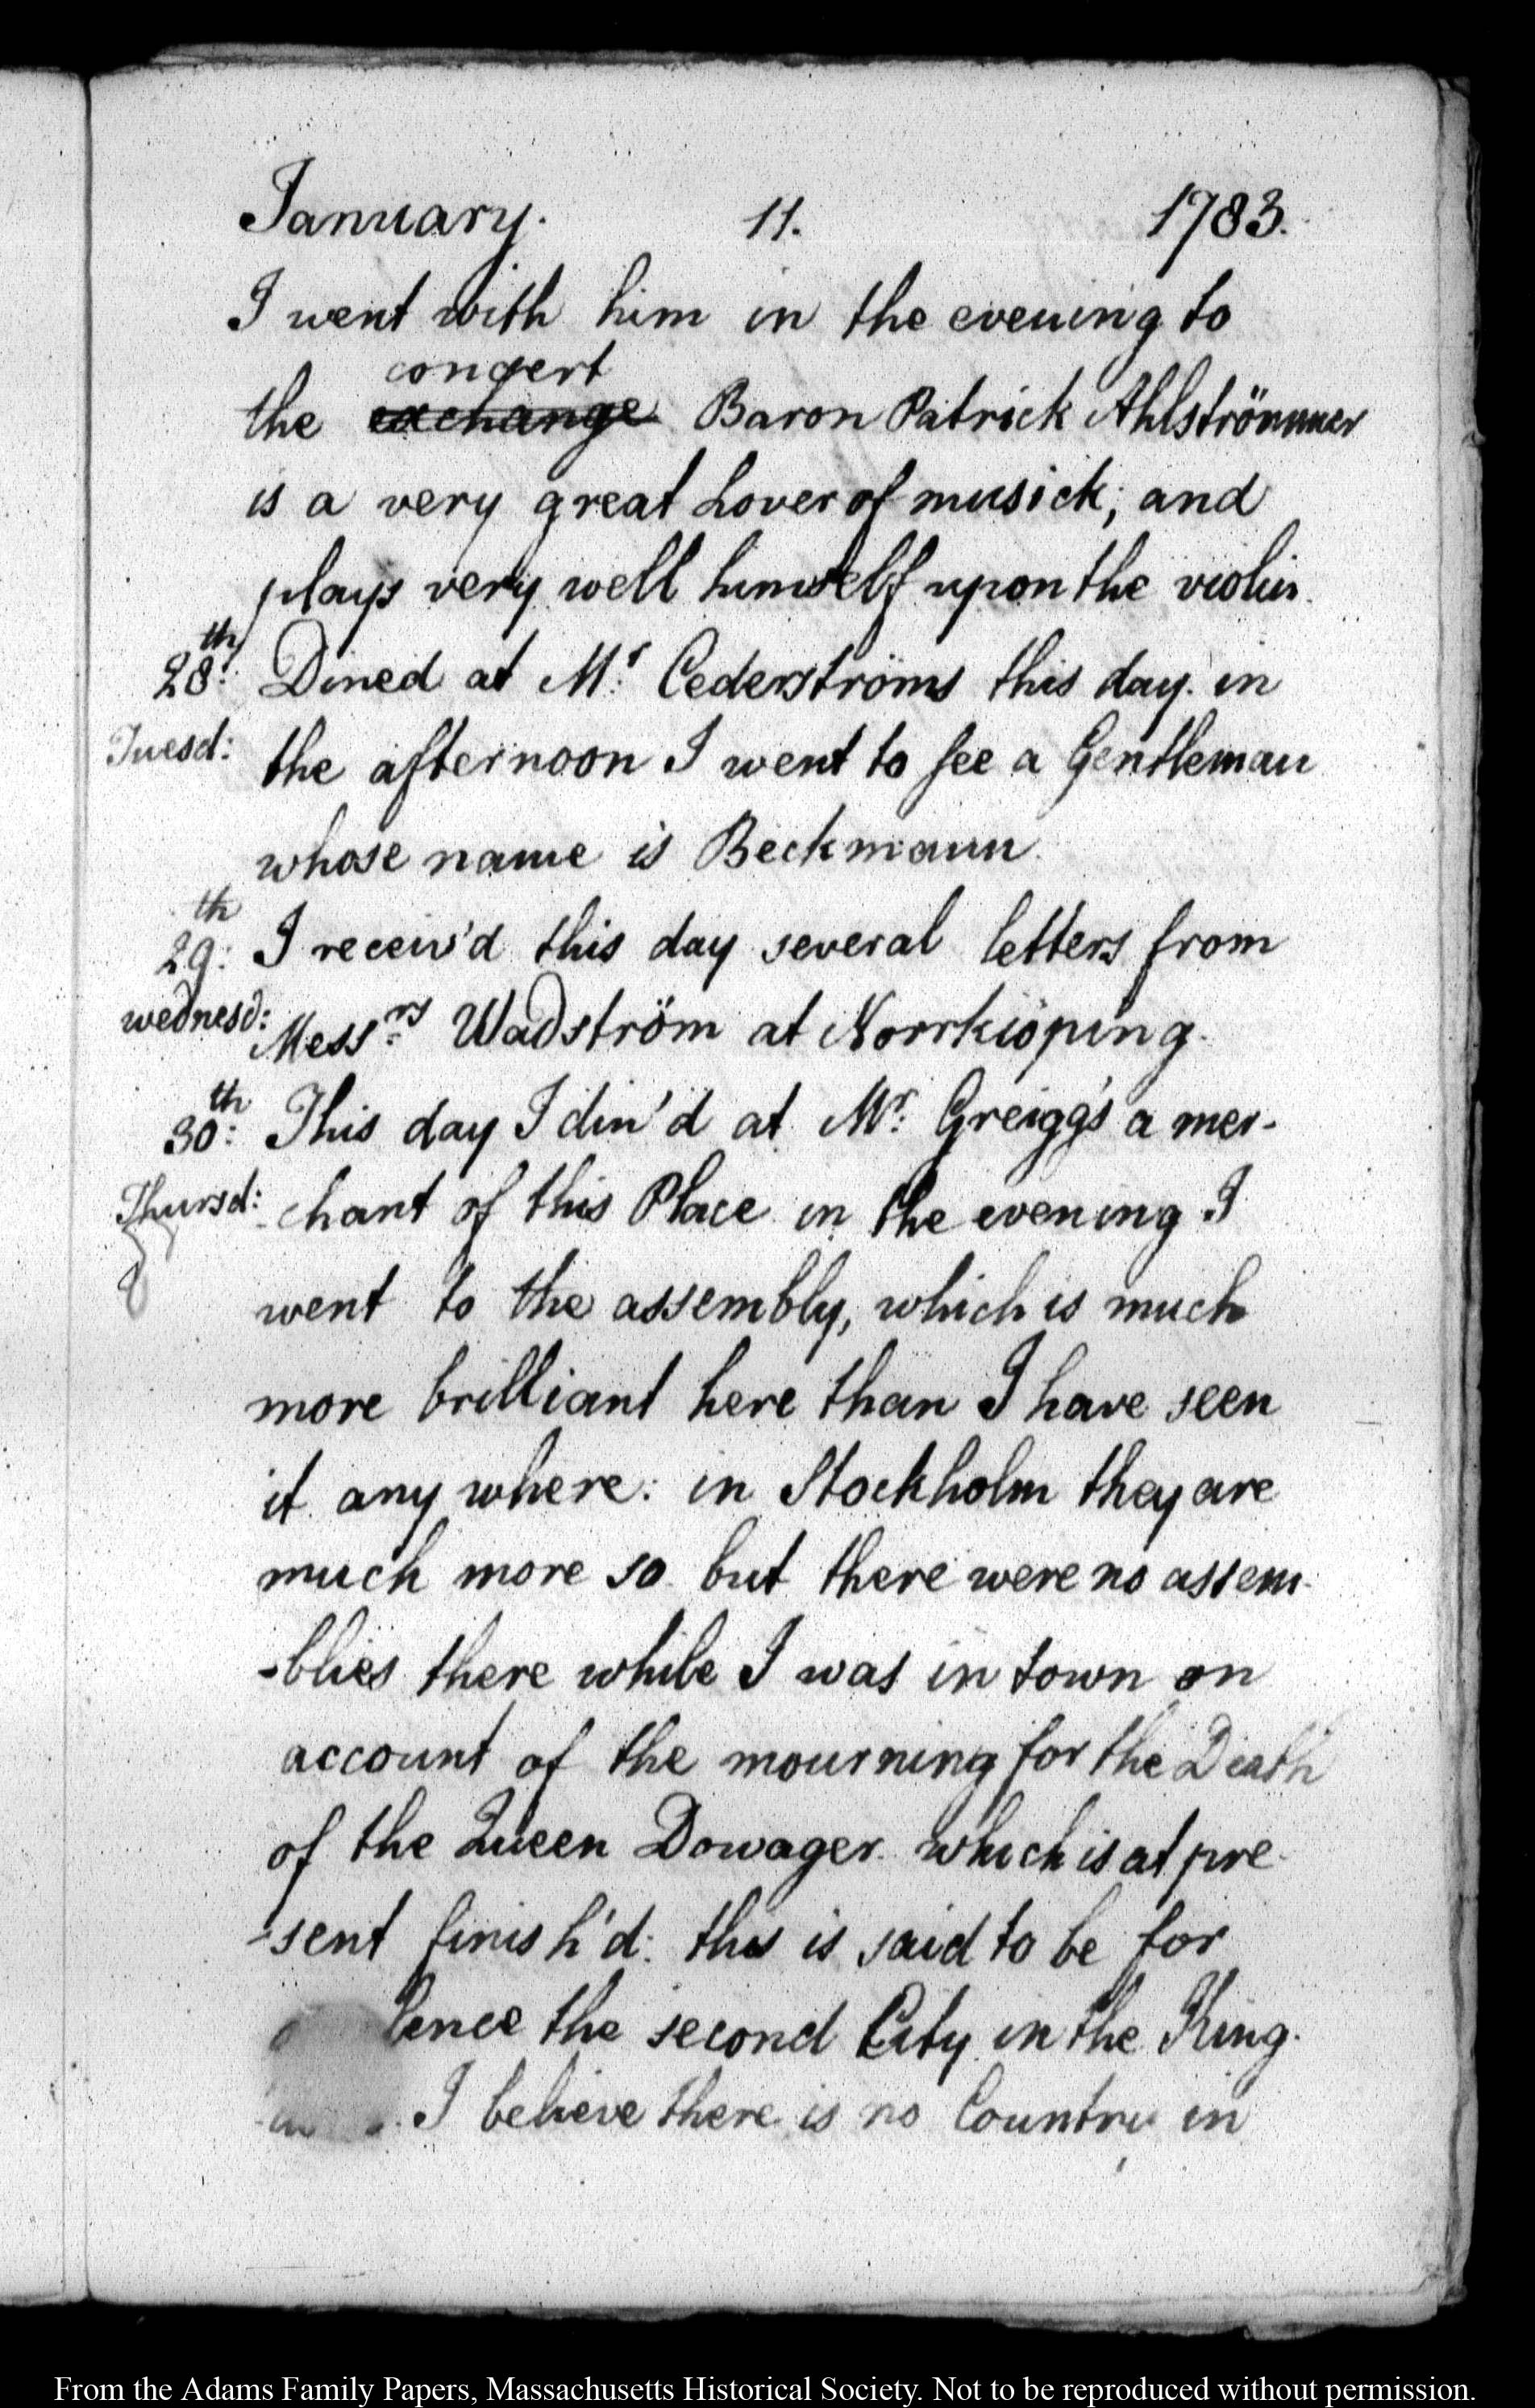 January. 11. 1783.
I went with him in the evening to
concert
the exchange Baron Patrick Ahlströmmer
is a very great Lover of musick; and
plays very well himself upon the violin.
28th: Dined at Mr: Cederströms this day. in
Tuesd: the afternoon I went to see a Gentleman
whose name is Beckmann.
29th: I receiv'd this day several letters from
wednesd: Messrs: Wadström at Norrkiöping.
30th: This day I din'd at Mr: Greigg's a mer-
Thursd: -chant of this Place in the evening I
went to the assembly, which is much
more brilliant here than I have seen
it any where: in Stockholm they are
much more so but there were no assem-
-blies there while I was in town on
account of the mourning for the Death
of the Queen Dowager. which is at pre-
-sent finish'd: this is said to be for
the second City in the King-
I believe there is no Country in
From the Adams Family Papers, Massachusetts Historical Society. Not to be reproduced without permission.